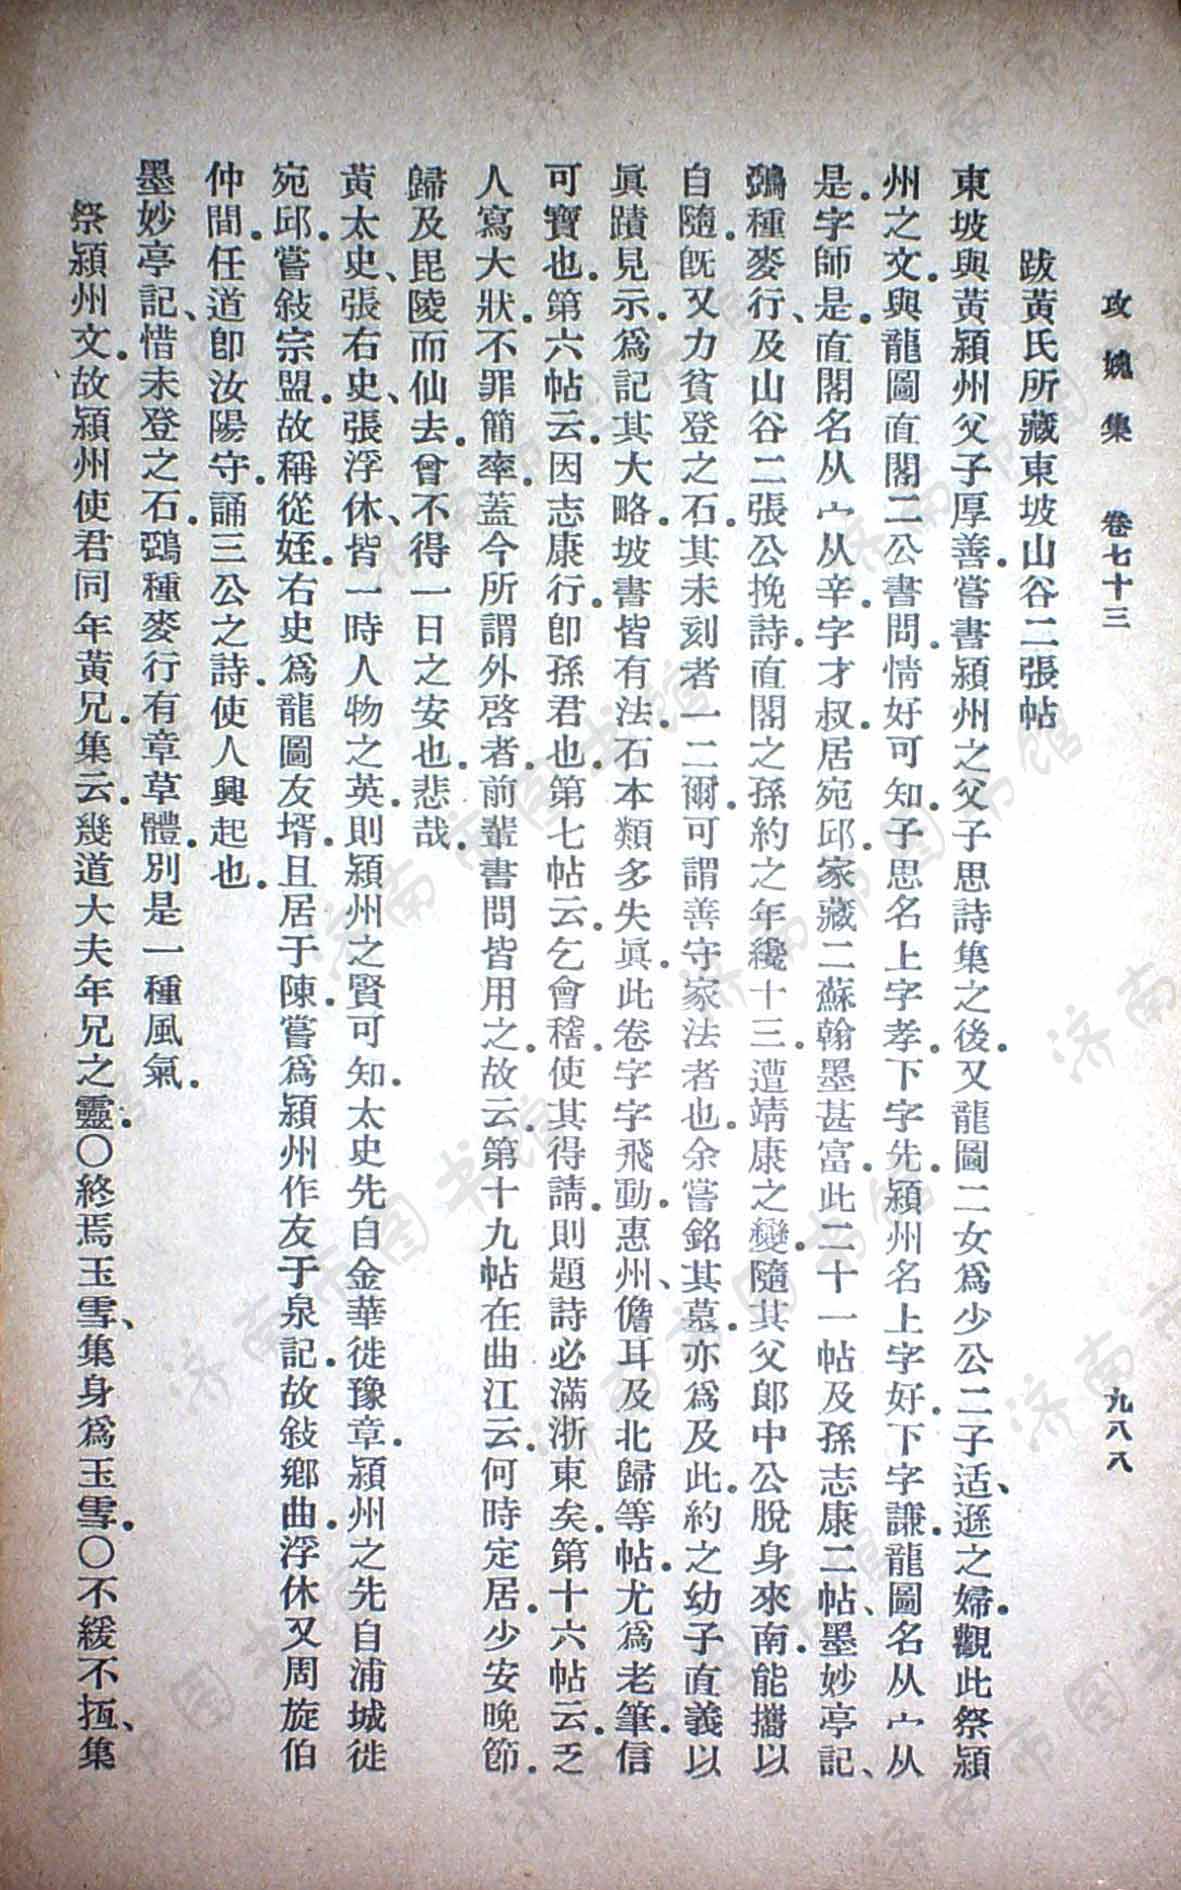 攻媿集　卷七十三　九八八
跋黃氏所藏東坡山谷二張帖
東坡與黃潁州父子厚善。嘗書潁州之父子思詩集之後。又龍圖二女爲少公二子适、遜之婦。觀此祭潁
州之文。與龍圖直閣二公書問。情好可知。子思名上字孝。下字先。潁州名上字好。下字謙。龍圖名从宀从
是。字師是。直閣名从宀从辛。字才叔。居宛邱。家藏二蘇翰墨甚富。此二十一帖及孫志康二帖、墨妙亭記、
鵶種麥行、及山谷二張公挽詩。直閣之孫約之年纔十三。遭靖康之變。隨其父郎中公脫身來南。能攜以
自隨。旣又力貧登之石。其未刻者一二爾。可謂善守家法者也。余嘗銘其墓。亦爲及此。約之幼子直義以
眞蹟見示。爲記其大略。坡書皆有法。石本類多失眞。此卷字字飛動。惠州、儋耳及北歸等帖。尤爲老筆。信
可寶也。第六帖云。因志康行。卽孫君也。第七帖云。乞會稽。使其得請。則題詩必滿浙東矣。第十六帖云。乏
人寫大狀。不罪簡率。蓋今所謂外啓者。前輩書問皆用之。故云。第十九帖在曲江云。何時定居。少安晚節。
歸及毘陵而仙去。曾不得一日之安也。悲哉。
黃太史、張右史、張浮休、皆一時人物之英。則潁州之賢可知。太史先自金華徙豫章。潁州之先自浦城徙
宛邱。嘗敍宗盟。故稱從姪。右史爲龍圖友壻。且居于陳。嘗爲潁州作友于泉記。故敍鄕曲。浮休又周旋伯
仲間。任道卽汝陽守。誦三公之詩。使人興起也。
墨妙亭記、惜未登之石。鵶種麥行有章草體。別是一種風氣。
祭潁州文。故潁州使君同年黃兄。集云。幾道大夫年兄之靈。〇終焉玉雪、集身爲玉雪。〇不緩不㧓、集